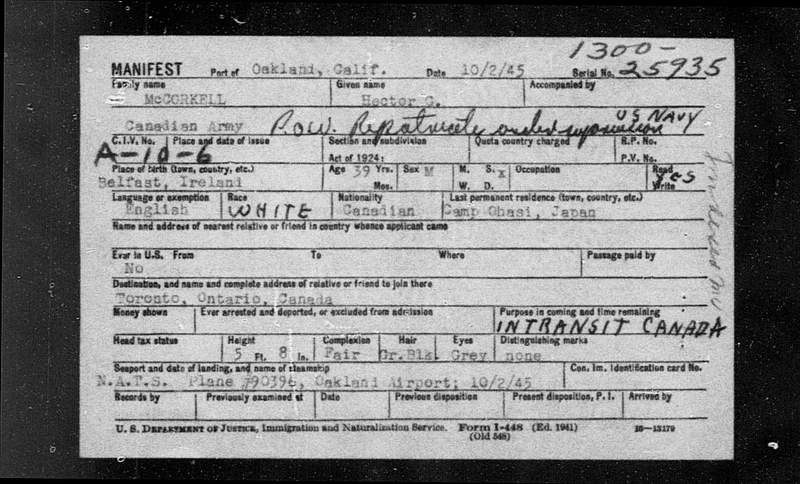 1300-
MANIFEST Port of Oakland, Calif. Date 10/2/45 Serial No. 25935
Family name Given name Accompanied by
McCORKELL Hector G.
Canadian Army P.O.W. Repatriate under supervision US NAVY
C.I.V. No. Place and date of issue Section and subdivision Quota country charged R.P. No.
A-10-6 Act of 1924: P.V. No.
Place of birth (town, country, etc.) Age 39 Yrs. Sex M M. S. x Occupation Read yes
Belfast, Ireland Mos. W. D. Write
Language or exemption Race Nationality Last permanent residence (town, country, etc.)
English WHITE Canadian Camp Ohasi, Japan
Name and address of nearest relative or friend in country whence applicant came
Ever in U.S. From To Where Passage paid by
No
Destination, and name and complete address of relative or friend to join there
Toronto, Ontario, Canada
Money shown Ever arrested and deported, or excluded from admission Purpose in coming and time remaining
INTRANSIT CANADA
Head tax status Height Complexion Hair Eyes Distinguishing marks
5 Ft. 8 In. Fair Gr.Blk. Grey none
Seaport and date of landing, and name of steamship Con. Im. Identification card No.
N.A.T.S. Plane #90396, Oakland Airport; 10/2/45
Records by Previously examined at Date Previous disposition Present disposition, P.I. Arrived by
U. S. DEPARTMENT OF JUSTICE, Immigration and Naturalization Service. Form I-448 (Ed. 1941) 16-13179
(Old 548)